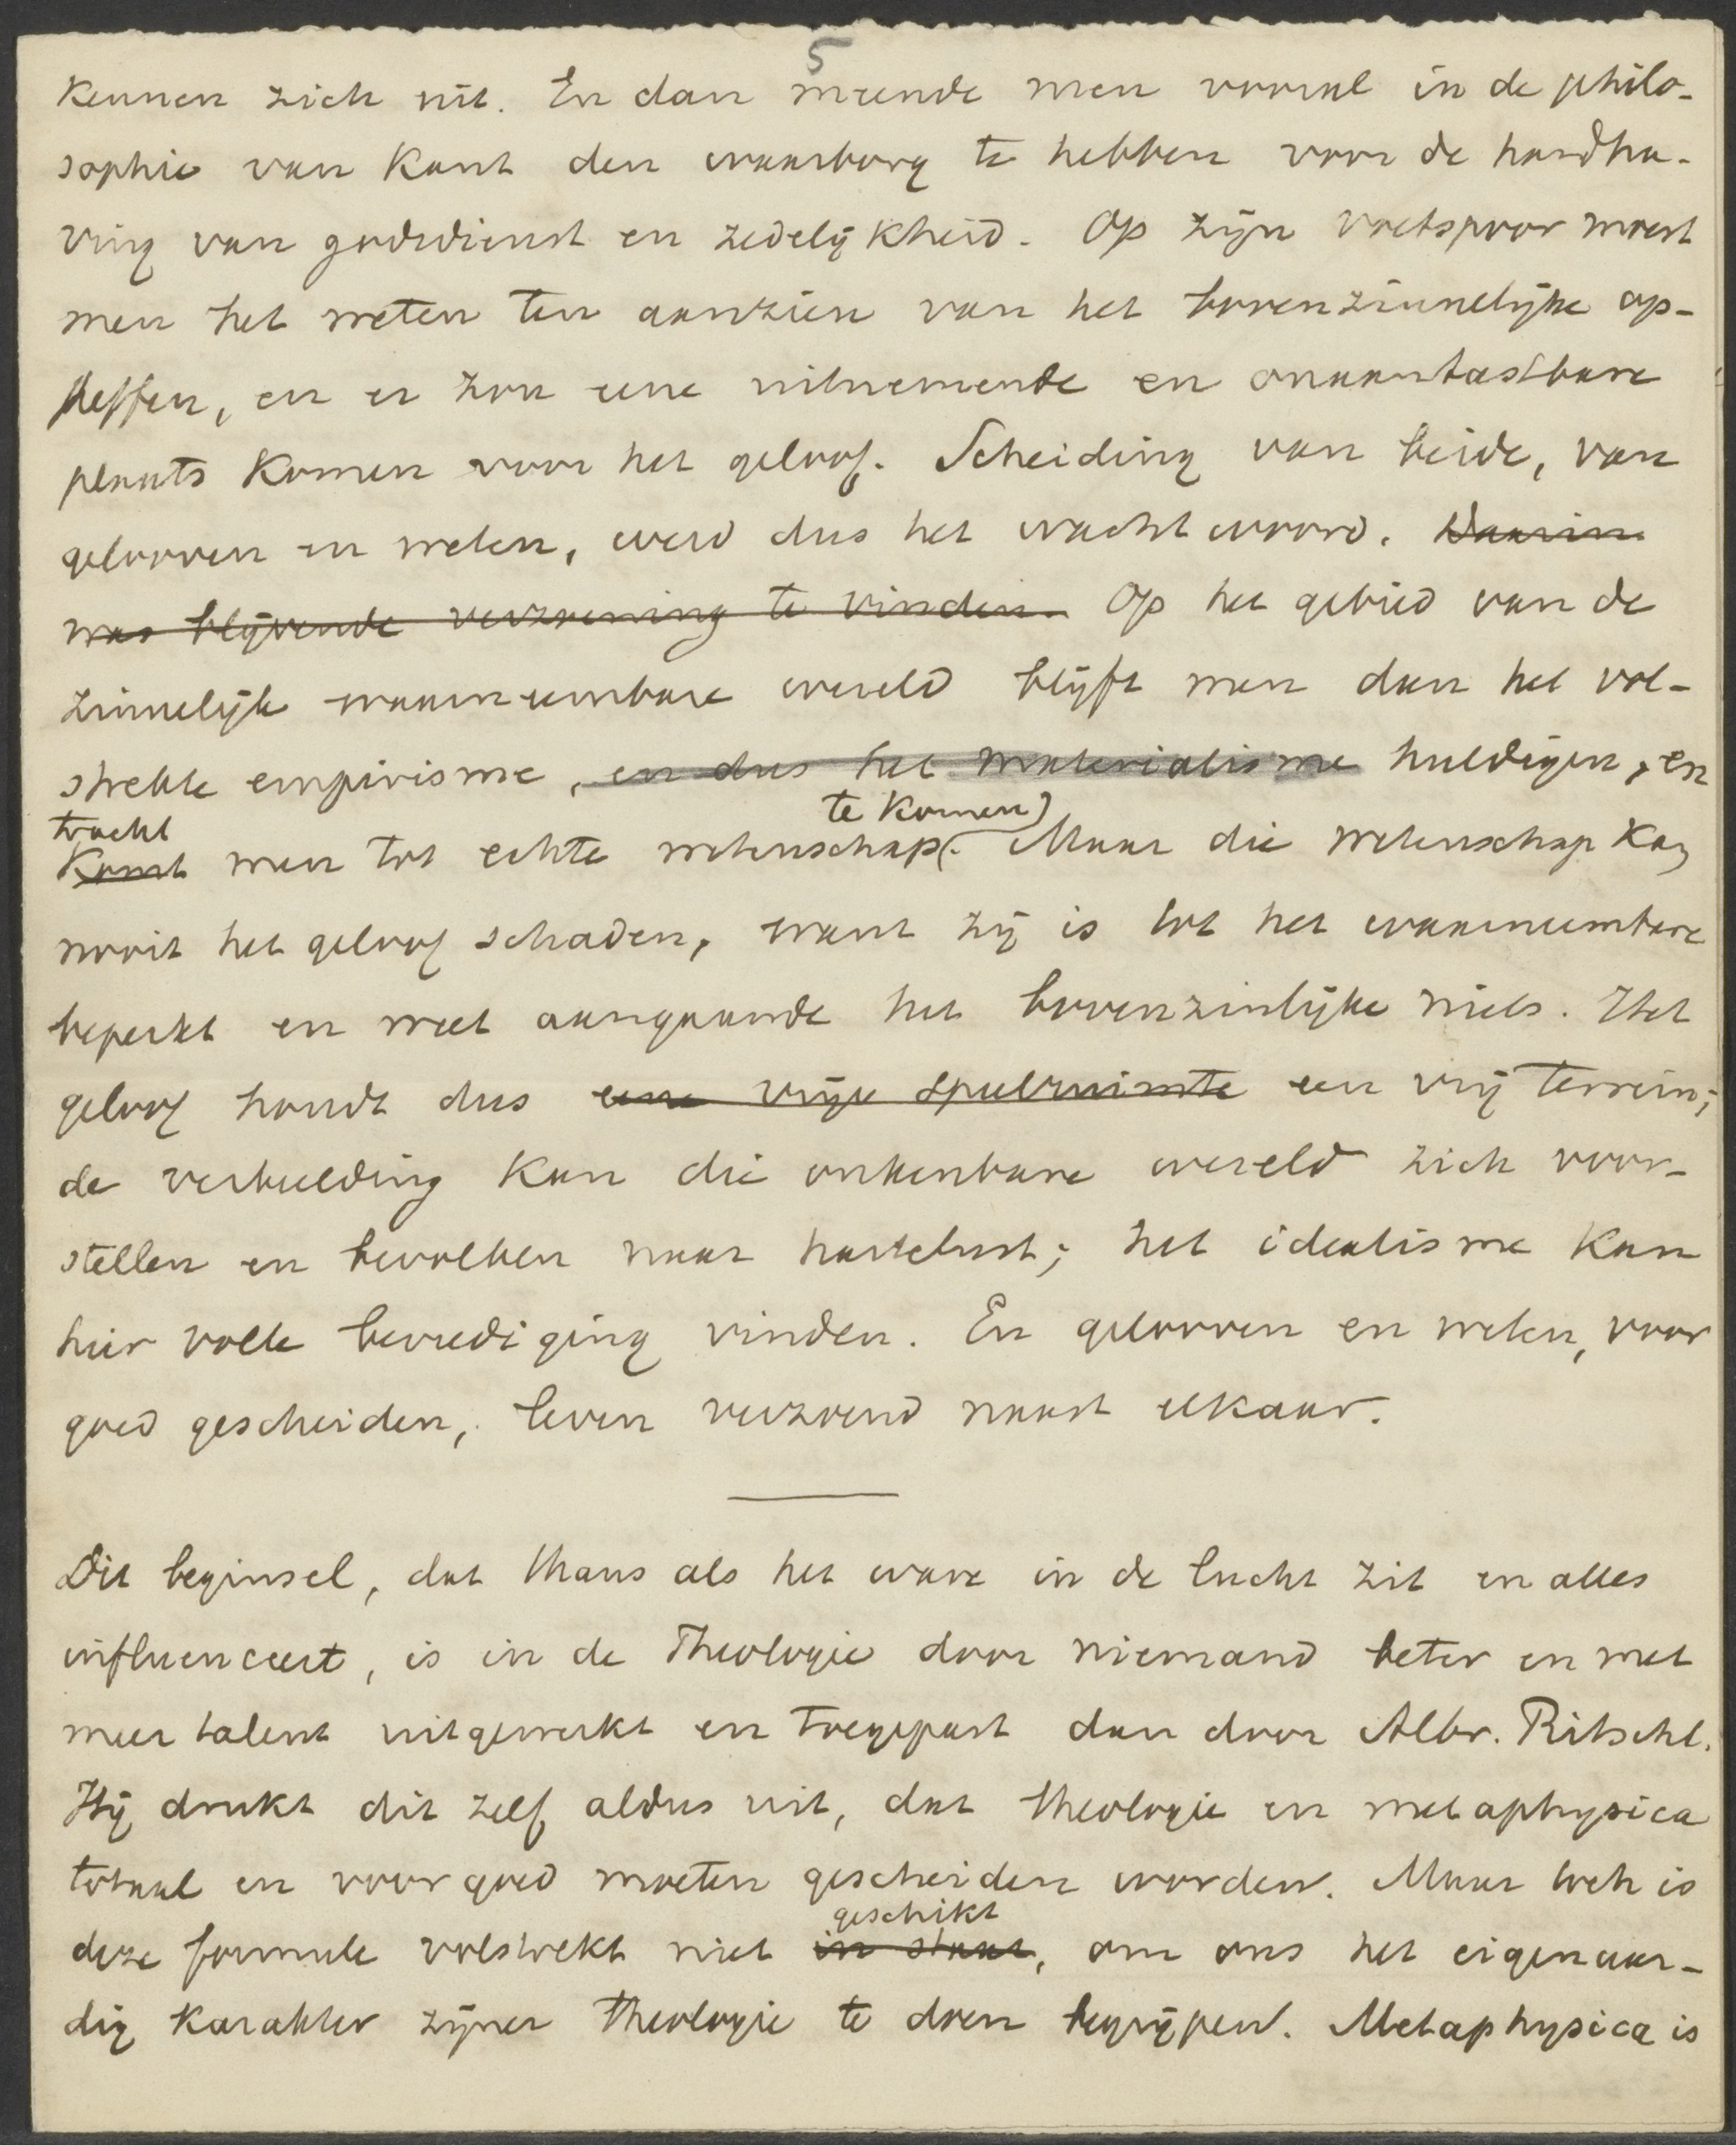 5
kennen zich uit. En dan meende men vooral in de philo-
sophie van Kant den waarborg te hebben voor de handha-
ving van godsdienst en zedelijkheid. Op zijn voetspoor moest
men het weten ten aanzien van het bovenzinnelijke op-
heffen, en er zou eene uitnemende en onaantastbare
plaats komen voor het geloof. Scheiding van beide, van
gelooven en weten, werd dus het wachtwoord. Daarin
was blijvende verzoening te vinden. Op het gebied van de
zinnelijk waarneembare wereld blijft men dan het vol-
strekte empirisme, en dus het materialisme huldigen, en
tracht te komen)
Komt men tot echte wetenschap(. Maar die wetenschap kan
nooit het geloof schaden, want zij is tot het waarneembare
beperkt en weet aangaande het bovenzinlijke niets. Het
geloof houdt dus eene vrije speelruimte een vrij terrein;
de verbeelding kan die onkenbare wereld zich voor-
stellen en bevolken naar hartelust; het idealisme kan
hier volle bevrediging vinden. En gelooven en weten, voor
goed gescheiden, leven verzoend naast elkaar.
Dit beginsel, dat thans als het ware in de lucht zit en alles
influenceert, is in de Theologie door niemand beter en met
meer talent uitgewerkt en toegepast dan door Albr. Ritschl.
Hij drukt dit zelf aldus uit, dat theologie en metaphysica
totaal en voorgoed moeten gescheiden worden. Maar toch is
geschikt
deze formule volstrekt niet in staat, om ons het eigenaar-
dig karakter zijner theologie te doen begrijpen. Metaphysica is